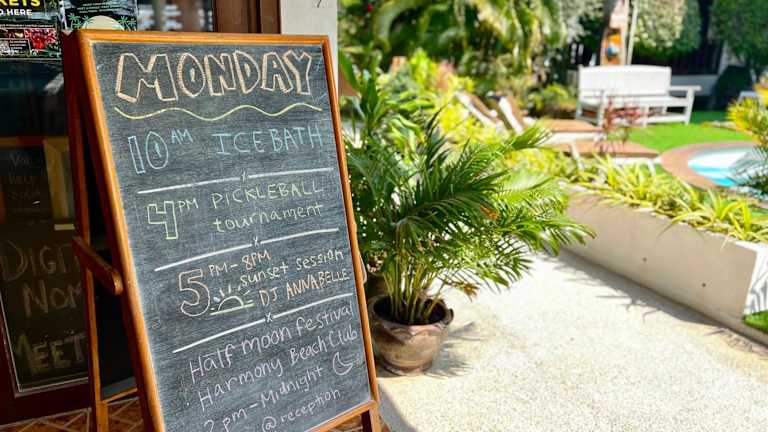 KETS
HERE
MONDAY
10AM ICE BATH
4PM PICKLEBALL
tournament
5PM - 8PM
sunset session
DJ ANNABELLE
Half moon festival
Harmony Beach Club
2pm - Midnight
@reception
DIGIT
NOM
MEET